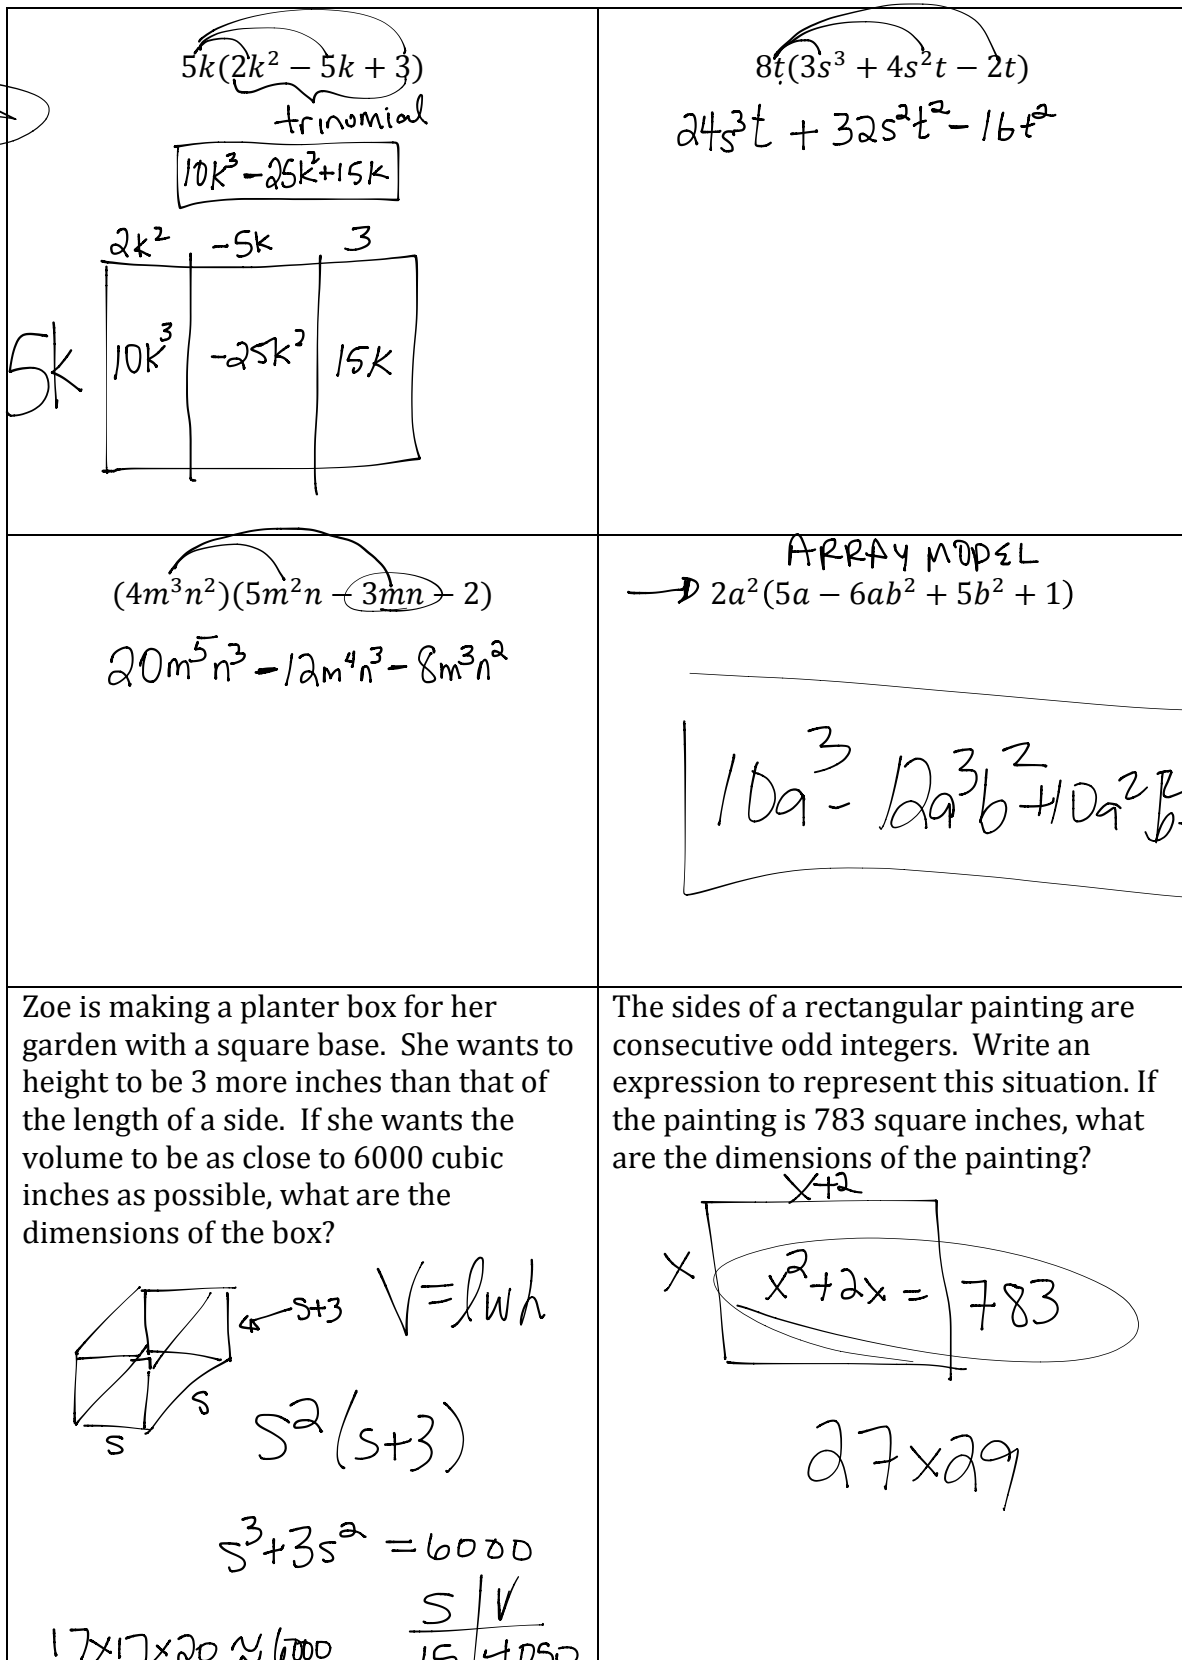 5k(2k² − 5k + 3)
trinomial
10k³ - 25k² + 15k
2k² -5k 3
5k 10k³ -25k² 15k
8t(3s³ + 4s²t − 2t)
24s³t + 32s²t² - 16t²
(4m³n²)(5m²n − 3mn − 2)
20m⁵n³ - 12m⁴n³ - 8m³n²
ARRAY MODEL
2a²(5a − 6ab² + 5b² + 1)
10a³ - 12a³b² + 10a²b²
Zoe is making a planter box for her
garden with a square base. She wants to
height to be 3 more inches than that of
the length of a side. If she wants the
volume to be as close to 6000 cubic
inches as possible, what are the
dimensions of the box?
V = lwh
s+3
s
s
s²(s+3)
s³+3s² = 6000
S V
15 4050
17x17x20 ≈ 6000
The sides of a rectangular painting are
consecutive odd integers. Write an
expression to represent this situation. If
the painting is 783 square inches, what
are the dimensions of the painting?
x+2
x x²+2x = 783
27x29